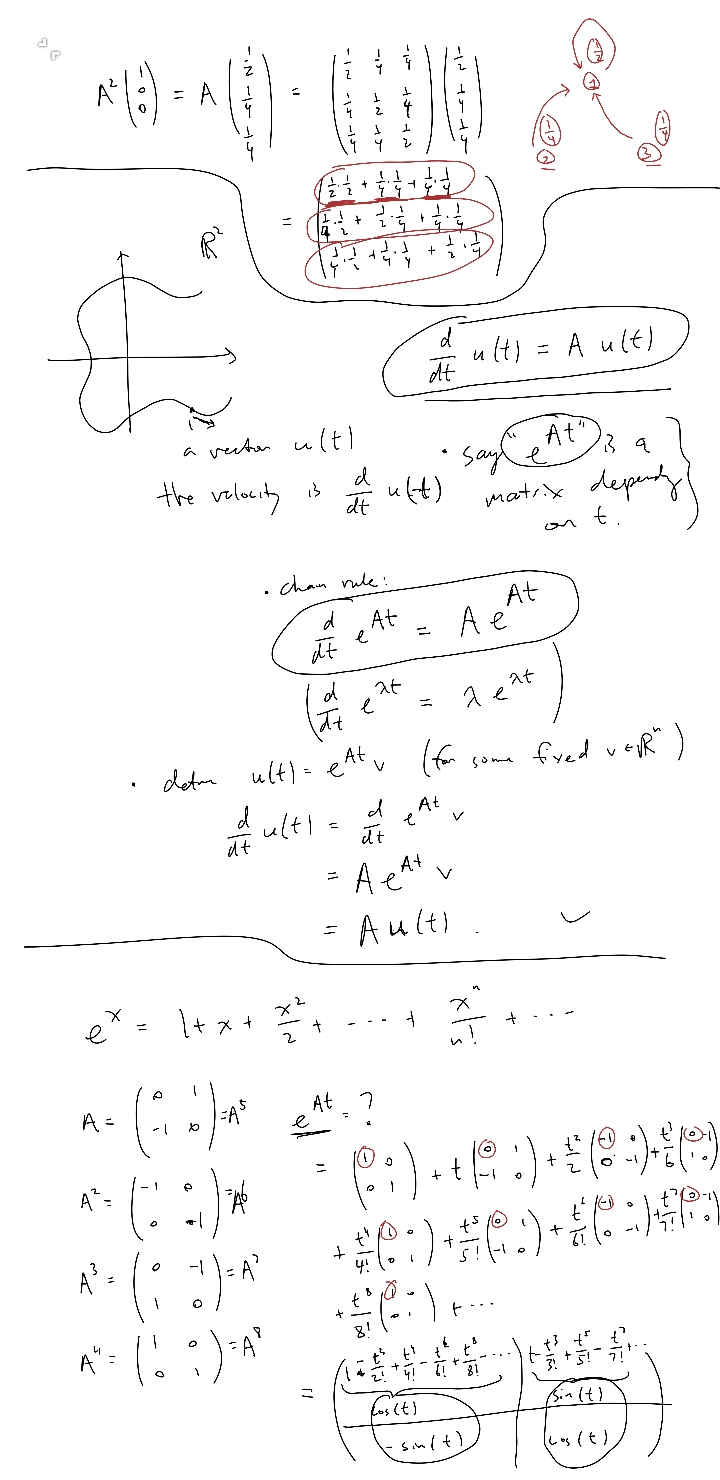 A²(1 0 0) = A(1/2 1/4 1/4) = (1/2 1/4 1/4; 1/4 1/2 1/4; 1/4 1/4 1/2)(1/2 1/4 1/4)
1/2 1
1/4 2
1/4 3
= (1/2·1/2 + 1/4·1/4 + 1/4·1/4
1/4·1/2 + 1/2·1/4 + 1/4·1/4
1/4·1/2 + 1/4·1/4 + 1/2·1/4)
ℝ²
d/dt u(t) = A u(t)
a vector u(t)
the velocity is d/dt u(t)
· say "e^{At}" is a
matrix depending
on t.
· chain rule:
d/dt e^{At} = A e^{At}
(d/dt e^{λt} = λ e^{λt})
· define u(t) = e^{At} v (for some fixed v ∈ ℝⁿ)
d/dt u(t) = d/dt e^{At} v
= A e^{At} v
= A u(t).
e^x = 1 + x + x²/2 + ... + xⁿ/n! + ...
A = (0 1; -1 0) = A⁵
A² = (-1 0; 0 -1) = A⁶
A³ = (0 -1; 1 0) = A⁷
A⁴ = (1 0; 0 1) = A⁸
e^{At} = ?
= (1 0; 0 1) + t(0 1; -1 0) + t²/2(-1 0; 0 -1) + t³/6(0 -1; 1 0)
+ t⁴/4!(1 0; 0 1) + t⁵/5!(0 1; -1 0) + t⁶/6!(-1 0; 0 -1) + t⁷/7!(0 -1; 1 0)
+ t⁸/8!(1 0; 0 1) + ...
= (1 - t²/2! + t⁴/4! - t⁶/6! + t⁸/8! - ... | t - t³/3! + t⁵/5! - t⁷/7! + ...
cos(t) sin(t)
-sin(t) cos(t))